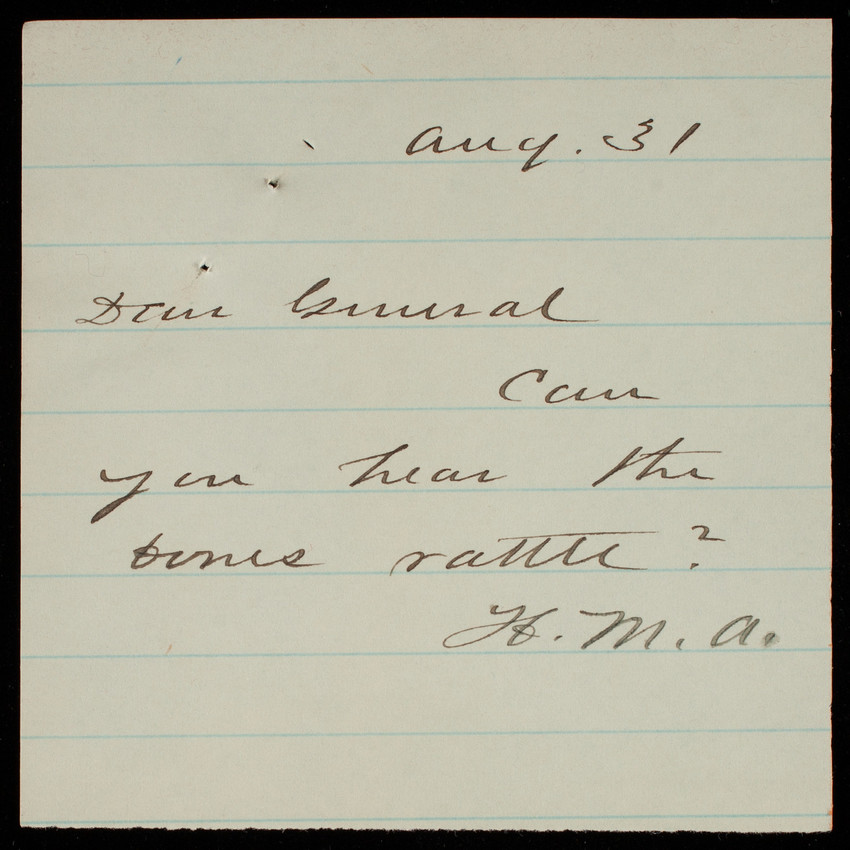 Aug. 31
Dear General
Can
you hear the
bones rattle?
H. M. A.